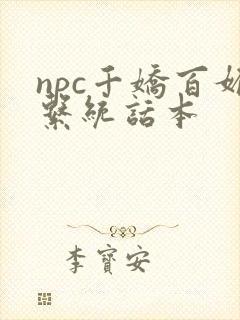 npc千嬌百媚
繫統話本
李寶安